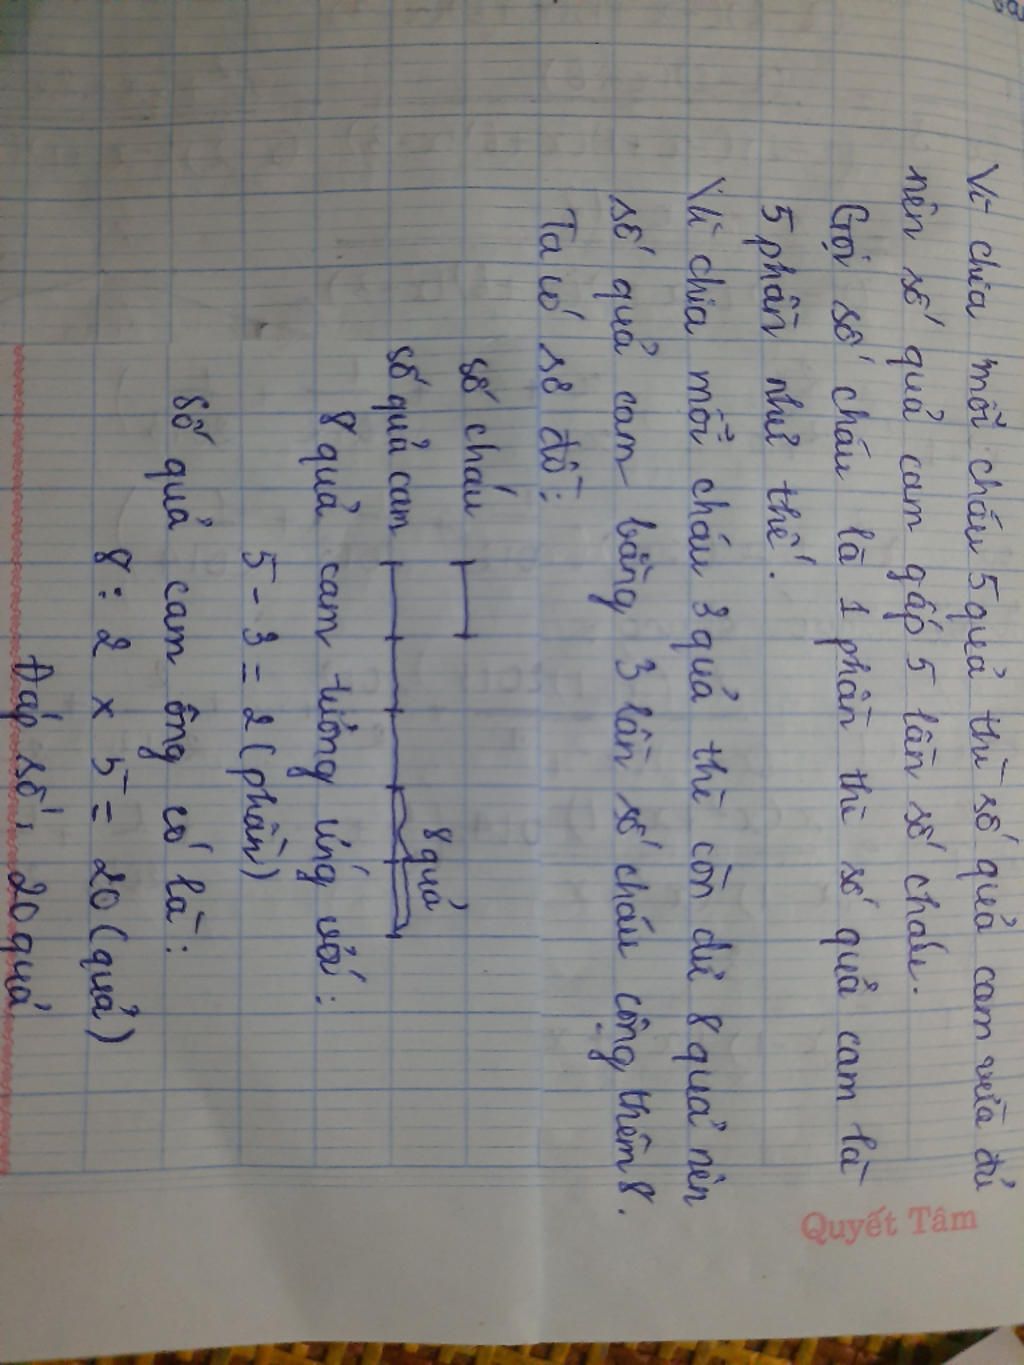 Vì chia mỗi cháu 5 quả thì số quả cam vừa đủ
nên số quả cam gấp 5 lần số cháu.
Gọi số cháu là 1 phần thì số quả cam là
5 phần như thế.
Vì chia mỗi cháu 3 quả thì còn dư 8 quả nên
số quả cam bằng 3 lần số cháu cộng thêm 8.
Ta có sơ đồ:
số cháu
8 quả
số quả cam
8 quả cam tương ứng với:
5 - 3 = 2 (phần)
Số quả cam ông có là:
8 : 2 x 5 = 20 (quả)
Đáp số: 20 quả
Quyết Tâm